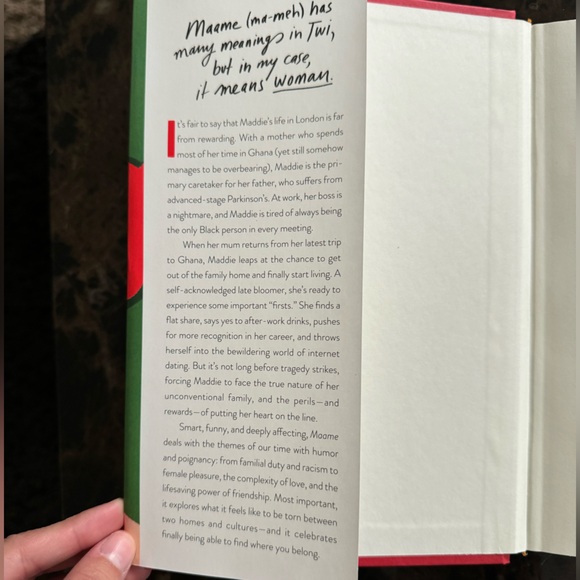 Maame (ma-meh) has
many meanings in Twi,
but in my case,
it means woman.
It's fair to say that Maddie's life in London is far
from rewarding. With a mother who spends
most of her time in Ghana (yet still somehow
manages to be overbearing), Maddie is the pri-
mary caretaker for her father, who suffers from
advanced-stage Parkinson's. At work, her boss is
a nightmare, and Maddie is tired of always being
the only Black person in every meeting.
When her mum returns from her latest trip
to Ghana, Maddie leaps at the chance to get
out of the family home and finally start living. A
self-acknowledged late bloomer, she's ready to
experience some important "firsts." She finds a
flat share, says yes to after-work drinks, pushes
for more recognition in her career, and throws
herself into the bewildering world of internet
dating. But it's not long before tragedy strikes,
forcing Maddie to face the true nature of her
unconventional family, and the perils—and
rewards—of putting her heart on the line.
Smart, funny, and deeply affecting, Maame
deals with the themes of our time with humor
and poignancy: from familial duty and racism to
female pleasure, the complexity of love, and the
lifesaving power of friendship. Most important,
it explores what it feels like to be torn between
two homes and cultures—and it celebrates
finally being able to find where you belong.